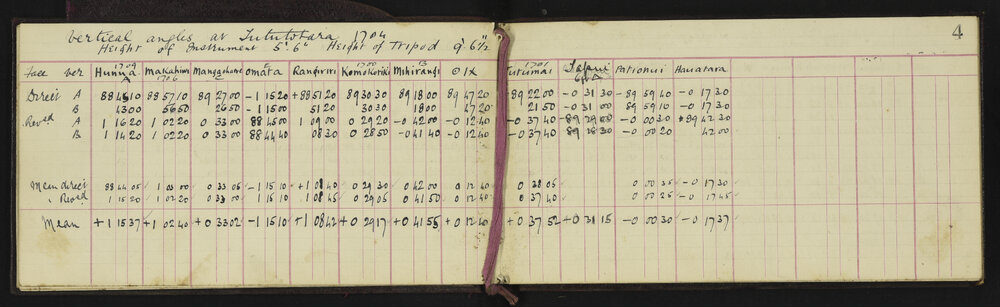 4
Vertical angles at Tututotara 1704
Height of Instrument 5' 6" Height of Tripod 9' 6½"
1709 1700 B 1701
Face ver Hunua Makahiwi Omata Rangiriri Komokoriki Mihirangi ⊙ IX Tutumai Tapui Patiohui Hauatara
A 1706
Direct A 88 45 10 88 57 10 89 27 00 -1 15 20 +88 51 20 89 30 30 89 18 00 89 47 20 +89 22 00 -0 31 30 -89 59 40 -0 17 30
B 43 00 56 50 26 50 -1 15 00 51 20 30 30 18 00 47 20 21 50 -0 31 00 89 59 10 -0 17 30
Revsd A 1 16 20 1 02 20 0 33 00 88 45 00 1 09 00 0 29 20 -0 42 00 -0 12 40 -0 37 40 -89 29 00 -0 00 30 +89 42 30
B 1 14 20 1 02 20 0 33 00 88 44 40 08 30 0 28 50 -0 41 40 -0 12 40 -0 37 40 89 28 30 -0 00 20 42 00
Mean direct 88 44 05 1 03 00 0 33 05 -1 15 10 +1 08 40 0 29 30 0 42 00 0 12 40 0 38 05 0 00 35 -0 17 30
" Revsd 1 15 20 1 02 20 0 33 00 1 15 10 1 08 45 0 29 05 0 41 50 0 12 40 0 37 40 0 00 25 -0 17 45
Mean +1 15 37 +1 02 40 +0 33 02 -1 15 10 +1 08 42 +0 29 17 +0 41 55 +0 12 40 +0 37 52 +0 31 15 -0 00 30 -0 17 37